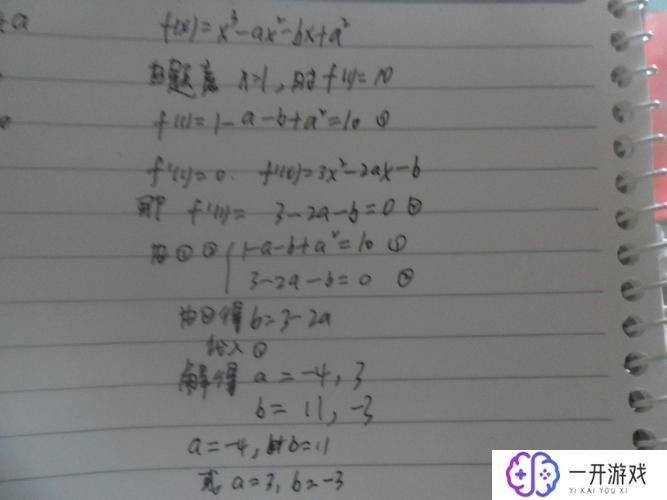 a
f(x)=x³-ax²-bx+a²
由题意 x=1, 时 f(1)=10
f(1)=1-a-b+a²=10 ①
f'(1)=0. f'(x)=3x²-2ax-b
即 f'(1)= 3-2a-b=0 ②
由①② { 1-a-b+a²=10 ①
3-2a-b=0 ②
由②得 b=3-2a
代入①
解得 a=-4, 3
b= 11, -3
a=-4, 时b=11
或 a=3, b=-3
一开游戏
YI KAI YOU XI